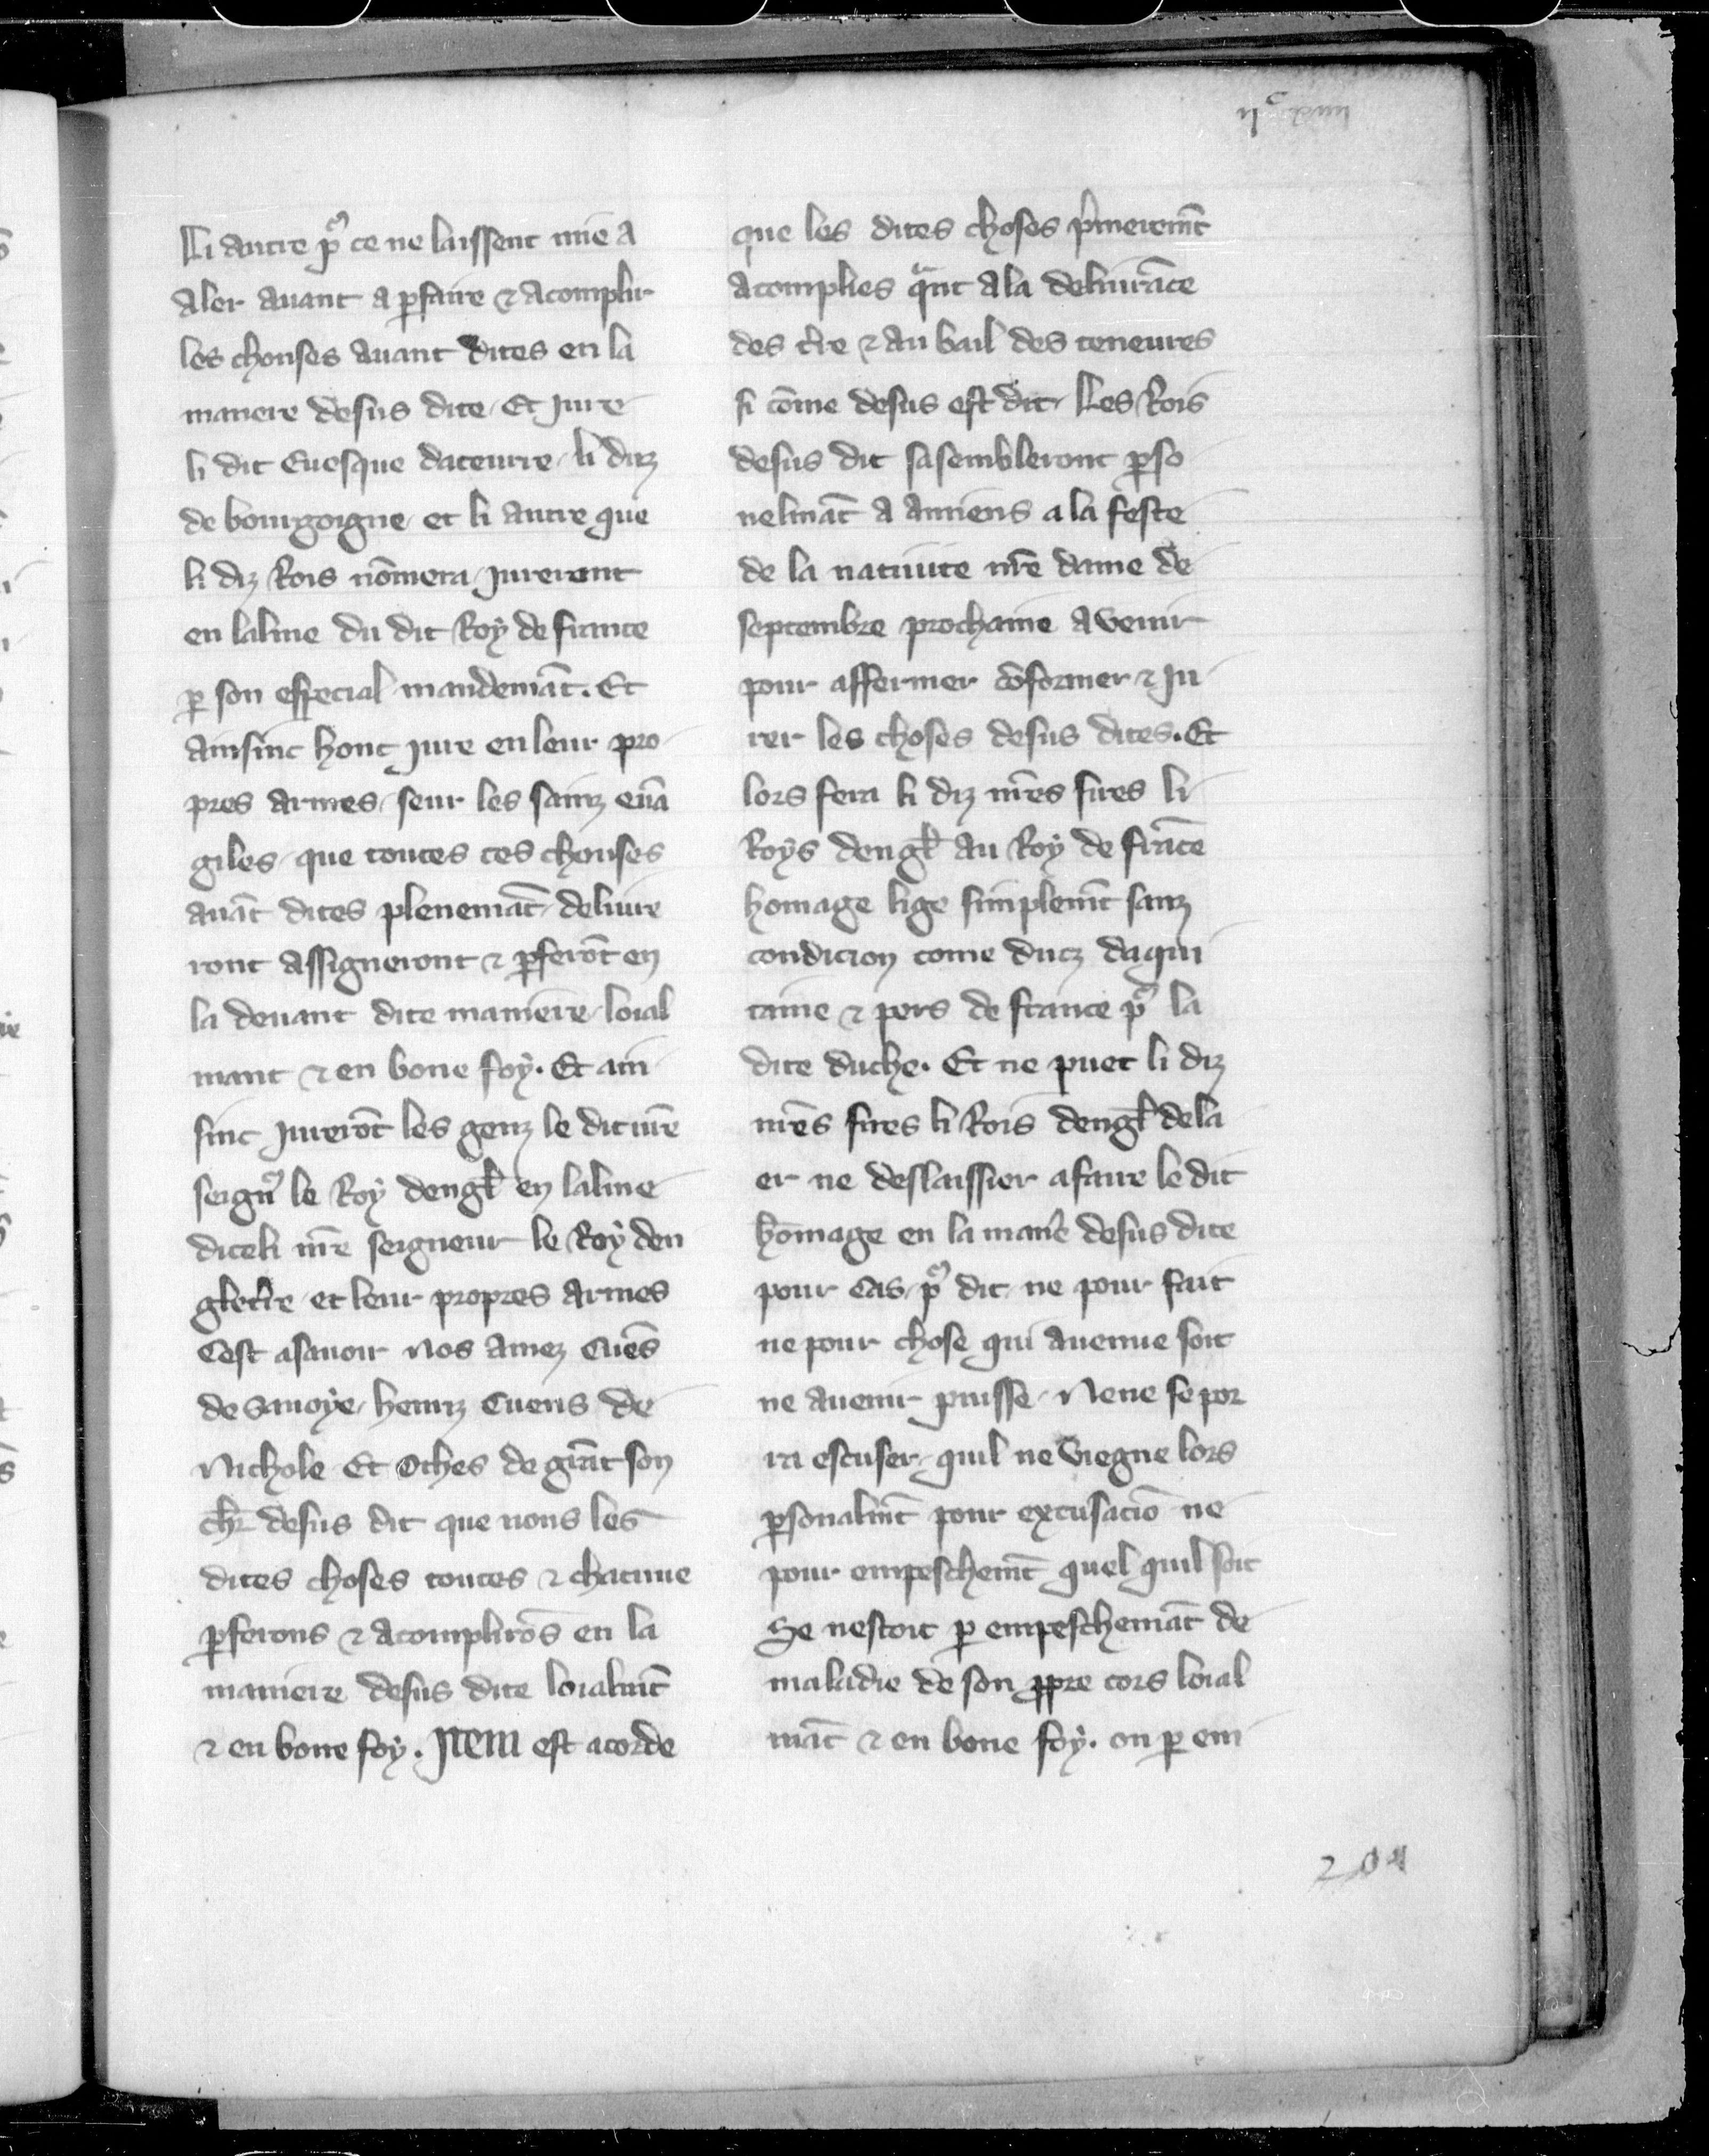 Li autre pͬ ce ne laissent mie a
aler auant a ꝑfaire ⁊ acomplir
les chouses auant dites en la
maniere desus dite. Et jure
li dit Euesque daceurre. li duz
de bourgoigne et li autre que
li diz Rois nōmera jurerent
en lalme du dit Roy de france
ꝑ son especial mandemāt. Et
ainsinc hont jure en leur pro
pres armes. seur les sainz euā
giles. que toutes ces chouses
auāt dites plenemāt. deliure
ront assigneront ⁊ ꝑferōt en
la deuant dite maniere. loial
mant ⁊ en bone foy. Et ain
sinc jurerōt les genz le dit nr̄e
seignͬ le Roy dengl̄ en lalme
diceli nr̄e seigneur le Roy den
glet̄re. et leur propres armes
Cest asauoir nos amez Cuēs
de sauoye. henrz Cuens de
Nichole. Et othes de grāt son
chr̄ desus dit que nous les
dites choses toutes ⁊ chacune
ꝑferons ⁊ acomplirōs en la
maniere desus dite loialmīt
⁊ en bone foy. Item est acorde
que les dites choses p̄merem̄t
acomplies q̄nt a la deliurāce
des t̄re ⁊ au bail des teneures
si cōme desus est dit. Les Rois
desus dit sasembleront ꝑso
nelmāt a amiens a la feste
de la natiuite nr̄e dame de
septembre prochaine a venir
pour affermer ꝯformer ⁊ ju
rer les choses desus dites. Et
lors fera li diz nr̄es sires li
Roys dengl̄ au Roy de frāce
homage lige simplem̄t sanz
condicion come ducz daqui
taine ⁊ pers de france pͬ la
dite duche. Et ne puet li diz
nr̄es sires li Rois dengl̄ dela
er ne deslaissier a faire le dit
hōmage en la man̄e desus dite
pour cas. pͬ dit. ne pour fait
ne pour chose qui auenue soit
ne auenir puisse. Ne ne se por
ra escuser. quil ne viegne lors
ꝑsonalm̄t pour excusaciō ne
pour empeschem̄t quel quil soit
Se nestoit ꝑ empeschemāt de
maladie de son ꝓpre cors loial
māt ⁊ en bone foy. ou ꝑ em